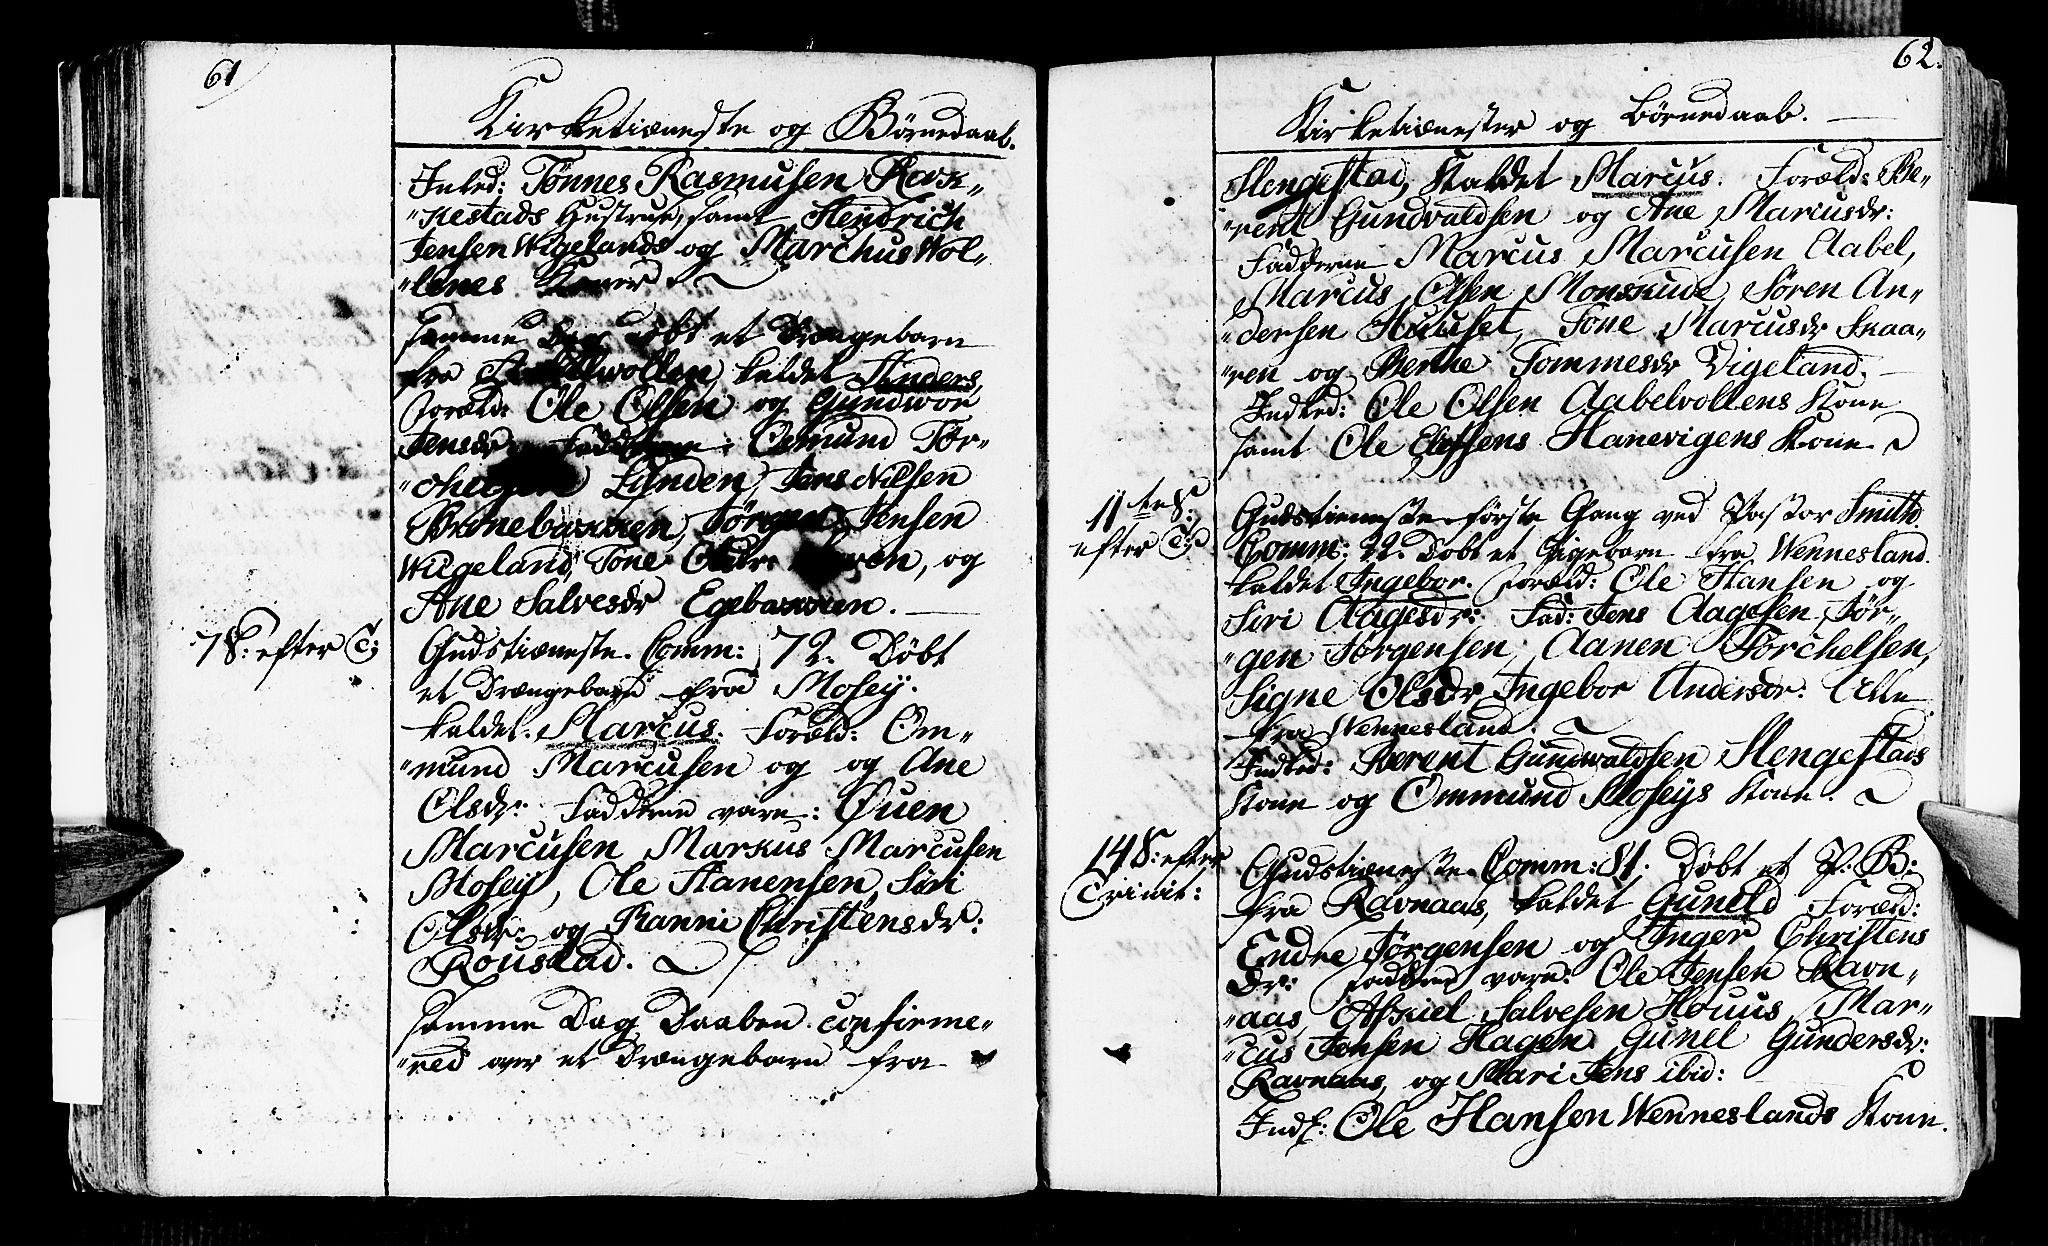 61
Kirketieneste og Börnedaab.
Inled: Tønnes Rasmusen Rok-
"kestads Hustrue, samt Hendrich
Jensen Wigelands og Marchus Wol-
"lenes Koner.
Samme Dag döbt et Drængebarn
fra kaldet Anders,
Foræld: Ole Olsen og Gundwor
Jensdr. Fadderne: Osmund Tør-
Lunden, Jens Nilsen
Jørgen Jensen
Wigeland, Tone Olsdr. og
Ane Salvesdr Egebannen.
7 S: efter T:
Gudstieneste. Comm: 72. Döbt
et Drængebarn fra Mosey.
kaldet. Marcus. Foræld: Om-
"mund Marcusen og og Ane
Olsdr: Fadderne vare: Øuen
Marcusen Markus Marcusen
Mosey, Ole Hanensen, Siri
Olsdr: og Ranni Christensdr:
Roustad.
Samme Dag Daaben confirme-
"red over et Drængebarn fra
62.
Kirketienester og Börnedaab.
Slengestad, kaldet Marcus. Foræld: Be-
"rent Gundvaldsen og Ane Marcusdr:
Fadderne Marcus Marcusen Aabel,
Marcus Olsen Monskude, Søren An-
"dersen Huuset, Tone Marcusdr Snaa-
"ren og Berthe Tommesdr Vigeland.
Indled: Ole Olsen Aabelvollens Kone
samt Ole Hanevigens Kone
11te S:
efter T:
Gudstieneste første Gang ved Pastor Smith.
Comm: 22. Döbt et Pigebarn fra Wennesland.
kaldet Ingebor. Foræld: Ole Hansen og
Siri Aagesdr: Fad: Jens Aagesen, Jør-
"gen Jørgensen, Aanen Torchelsen,
Signe Olsdr Ingebor Andersdr: Alle
fra Wennesland.
Indled: Berent Gundwaldsen Slengestads
Kone og Ommund Moseys Kone.
14 S: efter
Trinit:
Gudstieneste. Comm: 81. Döbt et P: B:
fra Ravnaas, kaldet Guneld Foræld:
Endre Jørgensen og Inger Christens
Dr: Fadderne vare: Ole Jensen Ravn-
"aas, Askiel Salvesen Houus, Mar-
"cus Jensen Hagen. Gunel Gundersdr:
Ravnaas, og Mari Jens ibid:
Indl: Ole Hansen Wenneslands Kone.